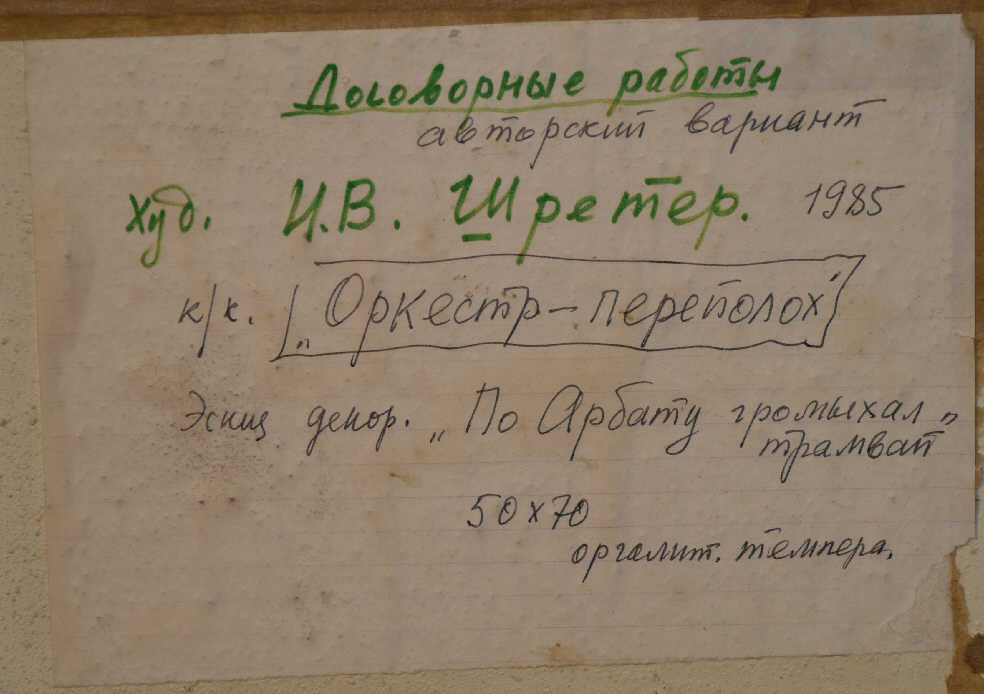 Договорные работы
авторский вариант
Худ. И.В. Шретер. 1985
к/к. „Оркестр-переполох"
Эскиц декор. „По Арбату громыхал„
трамвай
50x70
оргалит. темпера.